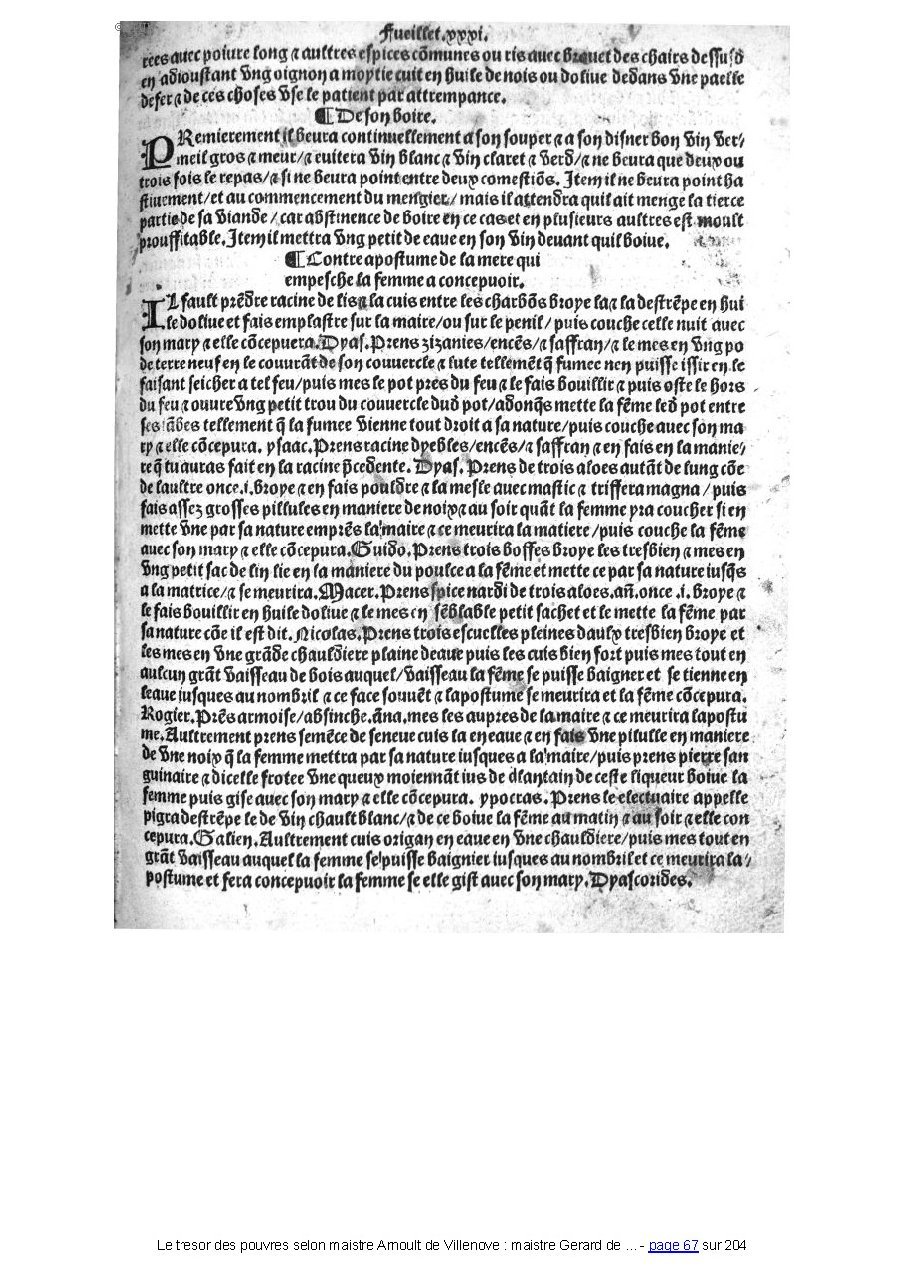 Fueillet.xxxi.
rees avec poiure long ⁊ aultres espices cõmunes ou ris avec brouet des chairs dessusd
en adioustant vng oignon a moytie cuit en huile de nois ou dolive dedans vne paelle
de fer ⁊ de ces choses vse le patient par attrempance.
¶ De son boire.
PRemierement il beura continuellement a son souper ⁊ a son disner bon vin ver/
meil gros ⁊ meur/⁊ euitera vin blanc ⁊ vin claret ⁊ verd/⁊ ne beura que deux ou
trois fois le repas/⁊ si ne beura point entre deux comestiõs. Item il ne beura point ha
stiuement/et au commencement du mengier/ mais il attendra quil ait menge la tierce
partie de sa viande/ car abstinence de boire en ce cas et en plusieurs aultres est moult
prouffitable. Item il mettra vng petit de eaue en son vin deuant quil boiue.
¶ Contre apostume de la mere qui
empesche la femme a concepuoir.
IL fault prẽdre racine de lis ⁊ la cuis entre les charbõs broye la ⁊ la destrẽpe en hui
le doliue et fais emplastre sur la maire/ou sur le penil/ puis couche celle nuit avec
son mary ⁊ elle cõcepuera. Dyas. Prens zizanies/encẽs/⁊ saffran/⁊ le mes en vng po
de terre neuf en le couurãt de son couuercle ⁊ lute tellemẽt q̃ fumee nen puisse issir en le
faisant seicher a tel feu/puis mes le pot pres du feu ⁊ le fais bouillir ⁊ puis oste le hors
du feu ⁊ ouure vng petit trou du couuercle dud pot/adonq̃s mette la fẽme led pot entre
ses iãbes tellement q̃ la fumee vienne tout droit a sa nature/puis couche auec son ma
ry ⁊ elle cõcepura. ysaac. Prens racine dyebles/encẽs/⁊ saffran ⁊ en fais en la manie/
re q̃ tu auras fait en la racine p̃cedente. Dyas. Prens de trois aloes autãt de lung cõe
de laultre once.i. broye ⁊ en fais pouldre ⁊ la mesle auec mastic ⁊ triffera magna/puis
fais assez grosses pillules en maniere de noix ⁊ au soir quãt la femme yra coucher si en
mette vne par sa nature emprẽs la maire ⁊ ce meurira la matiere/puis couche la fẽme
auec son mary ⁊ elle cõcepura. Guido. Prens trois bosses broye les tresbien ⁊ mes en
vng petit sac de lin lie en la maniere du poulce a la fẽme et mette ce par sa nature iusq̃s
a la matrice/⁊ se meurira. Macer. Prens spice nardi de trois aloes.añ.once .i. broye ⁊
le fais bouillir en huile doliue ⁊ le mes en sẽblable petit sachet et le mette la fẽme par
sa nature cõe il est dit. Nicolas. Prens trois escuelles pleines daulx tresbien broye et
les mes en vne grãde chauldiere plaine deaue puis les cuis bien fort puis mes tout en
aulcun grãt vaisseau de bois auquel/vaisseau la fẽme se puisse baigner et se tienne en
leaue iusques au nombril ⁊ ce face souuẽt ⁊ lapostume se meurira et la fẽme cõcepura.
Rogier. Prẽs armoise/absinche.ãna.mes les aupres de la maire ⁊ ce meurira lapostu
me. Aultrement prens semẽce de seneue cuis la en eaue ⁊ en fais vne pilulle en maniere
de vne noix q̃ la femme mettra par sa nature iusques a la maire/puis prens pierre san
guinaire ⁊ dicelle frotee vne queux moiennãt ius de plantain de ceste liqueur boiue la
femme puis gise auec son mary ⁊ elle cõcepura. ypocras. Prens le electuaire appelle
pigra destrẽpe le de vin chault blanc/⁊ de ce boiue la fẽme au matin ⁊ au soir ⁊ elle con
cepura. Galien. Aultrement cuis origan en eaue en vne chauldiere/puis mes tout en
grãt vaisseau auquel la femme se puisse baignier iusques au nombril et ce meurira la/
postume et fera concepuoir la femme se elle gist auec son mary. Dyascorides.
Le tresor des pouvres selon maistre Arnoult de Villenove : maistre Gerard de ... - page 67 sur 204